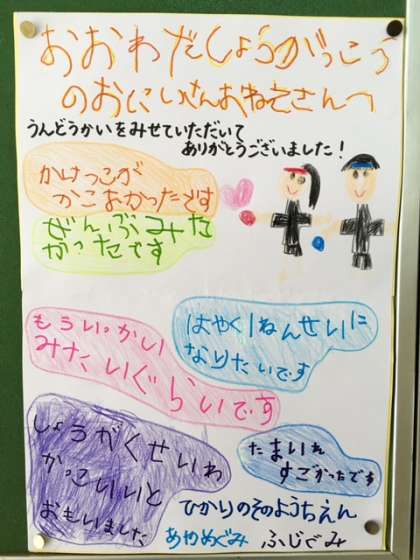 おおわだしょうがっこう
のおにいさんおねえさんへ
うんどうかいをみせていただいて
ありがとうございました！
かけっこが
かっこよかったです
ぜんぶみた
かったです
もういっかい
みたいぐらいです
はやく1ねんせいに
なりたいです
しょうがくせいわ
かっこいいと
おもいました
たまいれ
すごかったです
ひかりのそのようちえん
あやめぐみ ふじぐみ